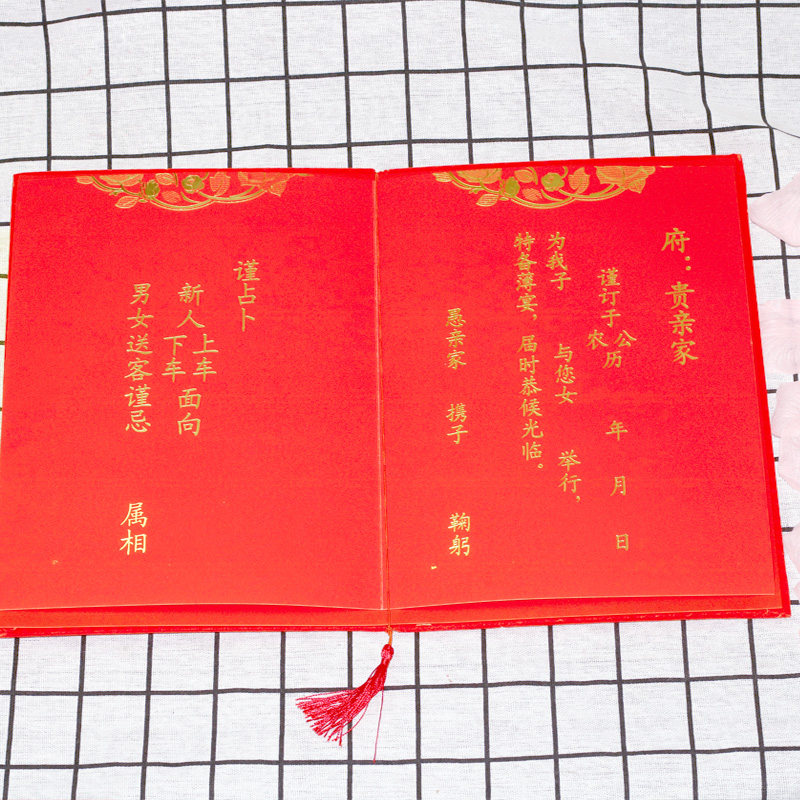 府：贵亲家
谨订于公历 年 月 日
农
为我子 与您女 举行，
特备薄宴，届时恭候光临。
愚亲家 携子 鞠躬
谨占卜
新人上车面向
下车
男女送客谨忌 属相